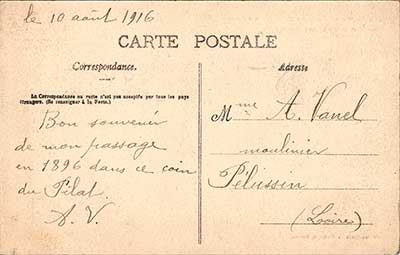 le 10 août 1916
CARTE POSTALE
Correspondance.
Adresse
La Correspondance au recto n'est pas acceptée par tous les pays
étrangers. (Se renseigner à la Poste.)
Bon souvenir
de mon passage
en 1896 dans ce coin
du Pilat.
A. V.
Mme A. Vanel
moulinier
Pélussin
(Loire)